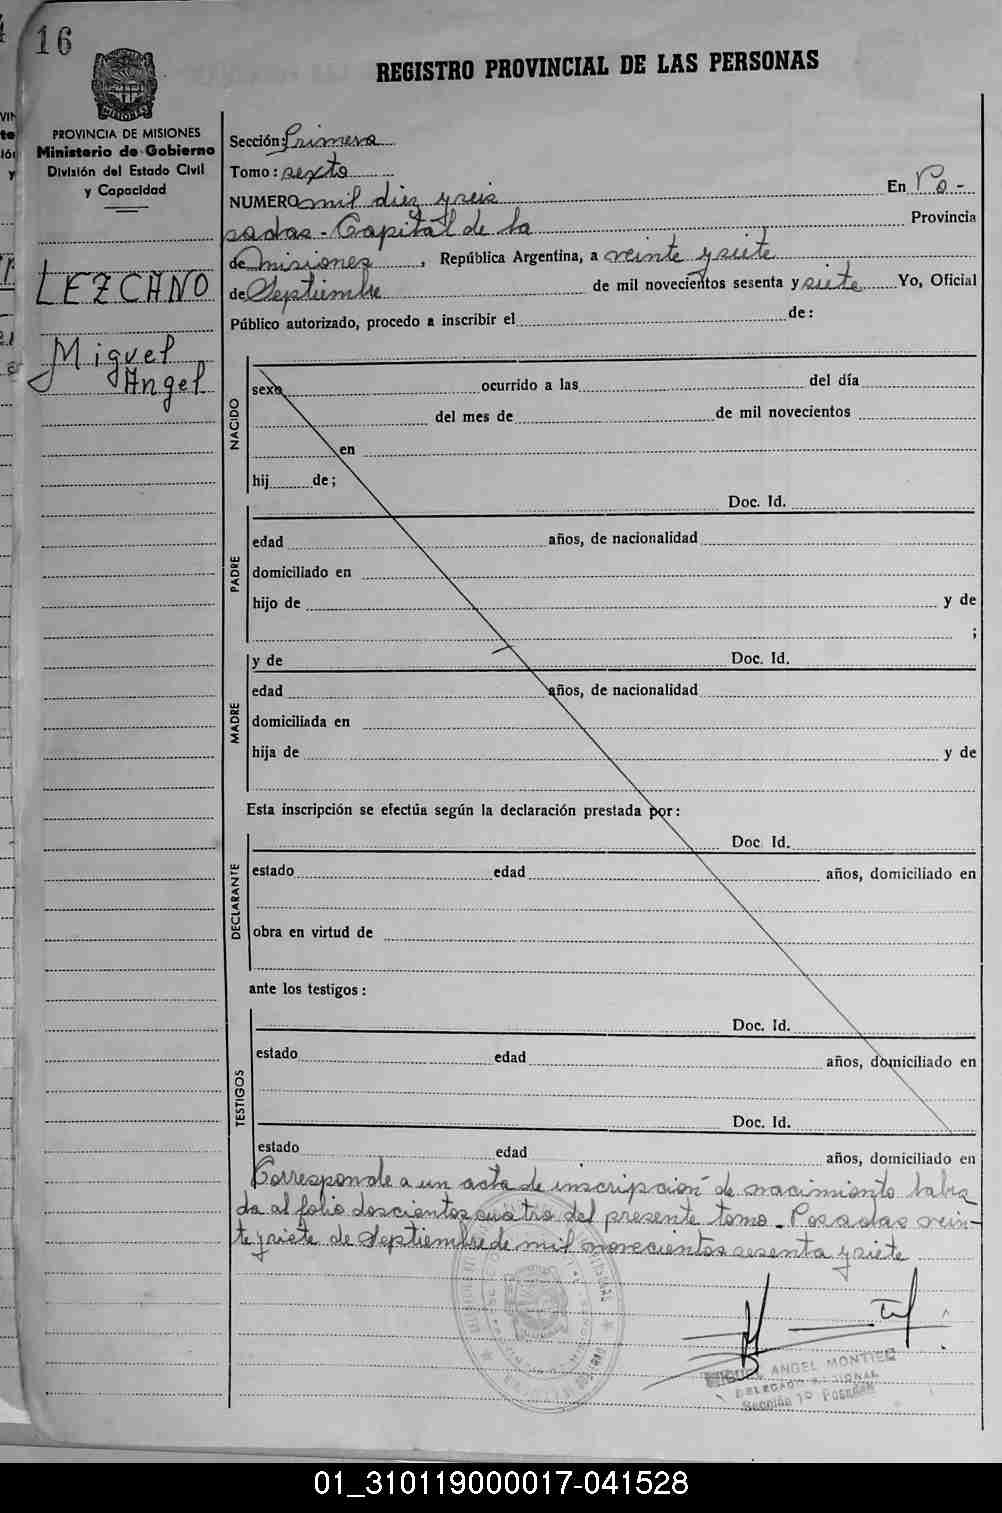 16
REGISTRO PROVINCIAL DE LAS PERSONAS
PROVINCIA DE MISIONES
Ministerio de Gobierno
División del Estado Civil
y Capacidad
LEZCANO
Miguel
Angel
Sección: Primera
Tomo: sexto
NUMERO mil diez y seis En Po-
sadas - Capital de la Provincia
de Misiones, República Argentina, a veinte y siete
de Septiembre de mil novecientos sesenta y siete Yo, Oficial
Público autorizado, procedo a inscribir el de:
NACIDO
sexo ocurrido a las del día
del mes de de mil novecientos
en
hij de;
Doc. Id.
PADRE
edad años, de nacionalidad
domiciliado en
hijo de y de
;
MADRE
y de Doc. Id.
edad años, de nacionalidad
domiciliada en
hija de y de
Esta inscripción se efectúa según la declaración prestada por:
Doc. Id.
DECLARANTE
estado edad años, domiciliado en
obra en virtud de
ante los testigos:
Doc. Id.
TESTIGOS
estado edad años, domiciliado en
Doc. Id.
estado edad años, domiciliado en
Corresponde a un acta de inscripción de nacimiento labra
da al folio doscientos cuatro del presente tomo - Posadas vein-
te y siete de Septiembre de mil novecientos sesenta y siete
MIGUEL ANGEL MONTIEL
DELEGADO
Sección 1º Posadas
01_310119000017-041528